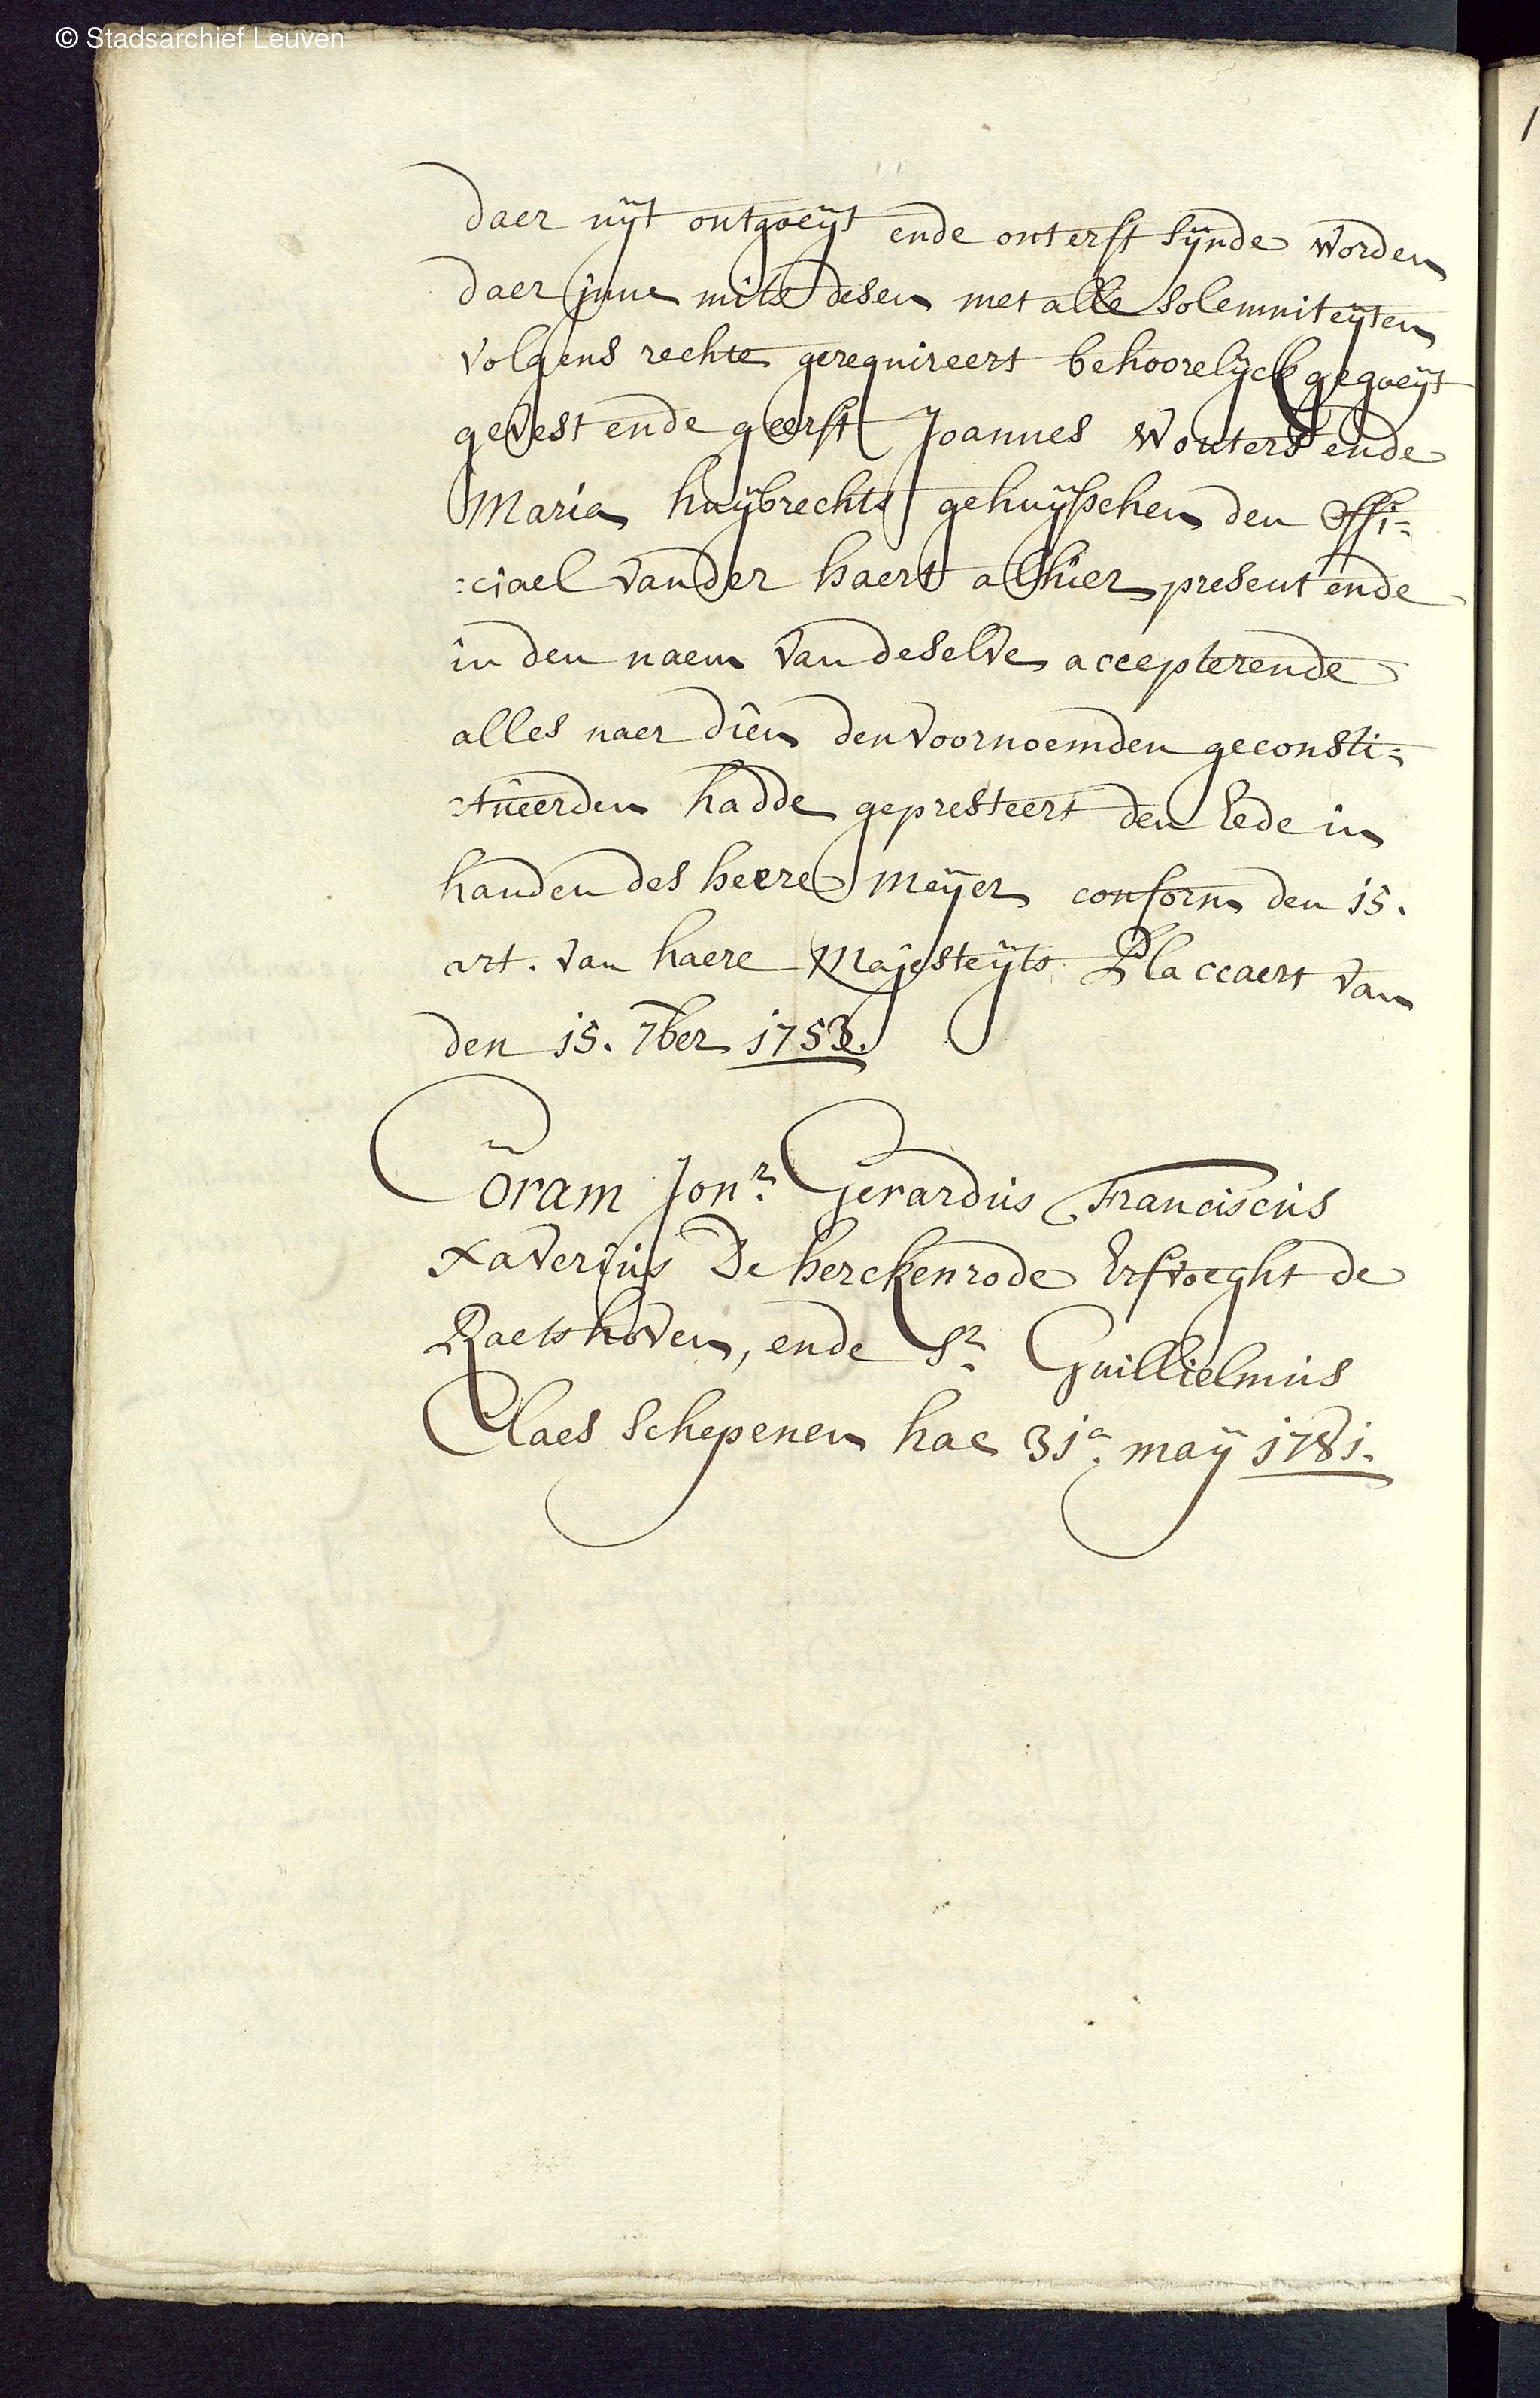 © Stadsarchief Leuven
daer uijt ontgoeijt ende onterft sijnde worden
daer inne mits desen met alle solemniteijten
volgens rechte gerequireert behoorelijck gegoeijt
gevest ende geerft Joannes Wouters ende
Maria huijbrechts gehuijsschen den offi=
:ciael vander haert alhier present ende
in den naem van deselve accepterende
alles naer dien den voornoemden geconsti=
:tueerden hadde gepresteert den Eede in
handen des heere Meijer conform den 15.
art. van haere Majesteijts Placcaert van
den 15. 7ber 1753.
Coram Jonr. Gerardus Franciscus
xaverius De herckenrode Erfvoeght de
Raetshoven, ende Sr. Guillielmus
Claes schepenen hac 31a. maij 1781.